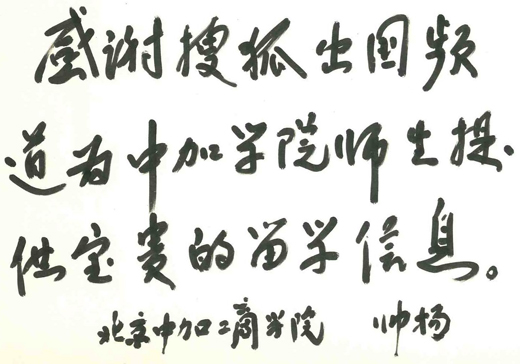 感谢搜狐出国频
道为中加学院师生提
供宝贵的留学信息。
北京中加工商学院 帅杨